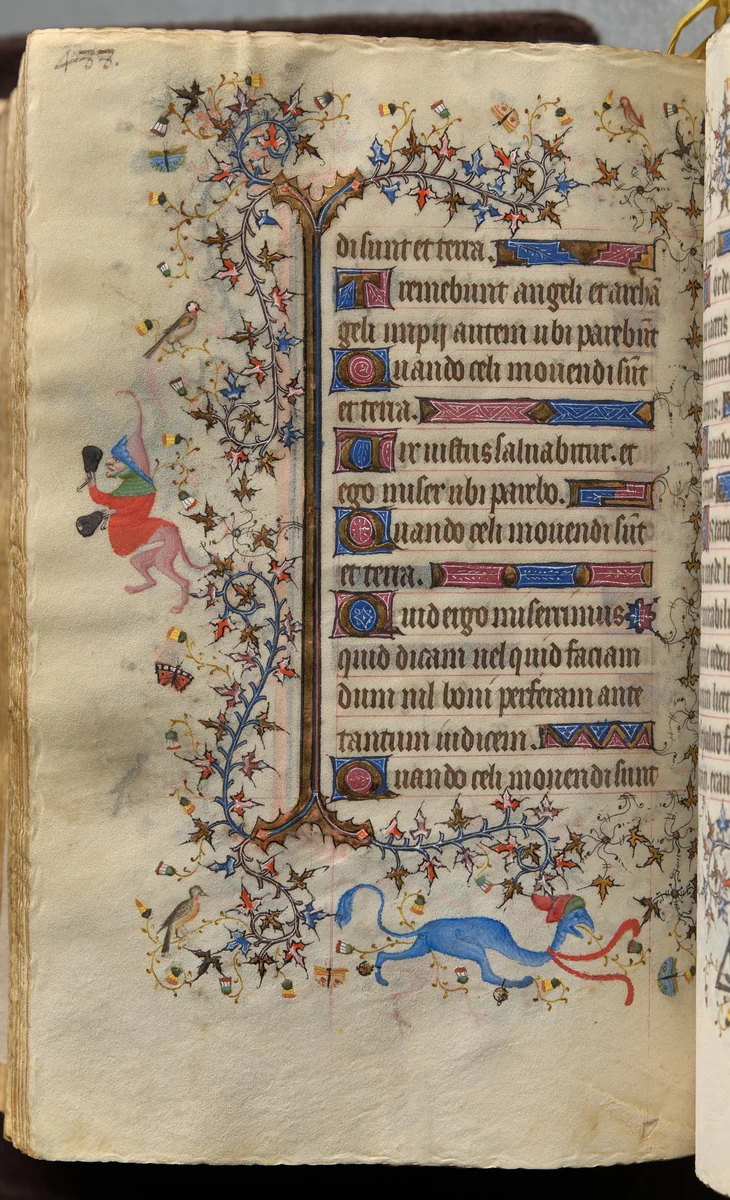 433.
di sunt et terra.
Tremebunt angeli et archā
geli impij autem ubi parebūt
Quando celi mouendi sūt
et terra.
Uix iustus saluabitur. et
ego miser ubi parebo.
Quando celi mouendi sūt
et terra.
Quid ergo miserrimus
quid dicam uel quid faciam
dum nil boni perferam ante
tantum iudicem.
Quando celi mouendi sunt